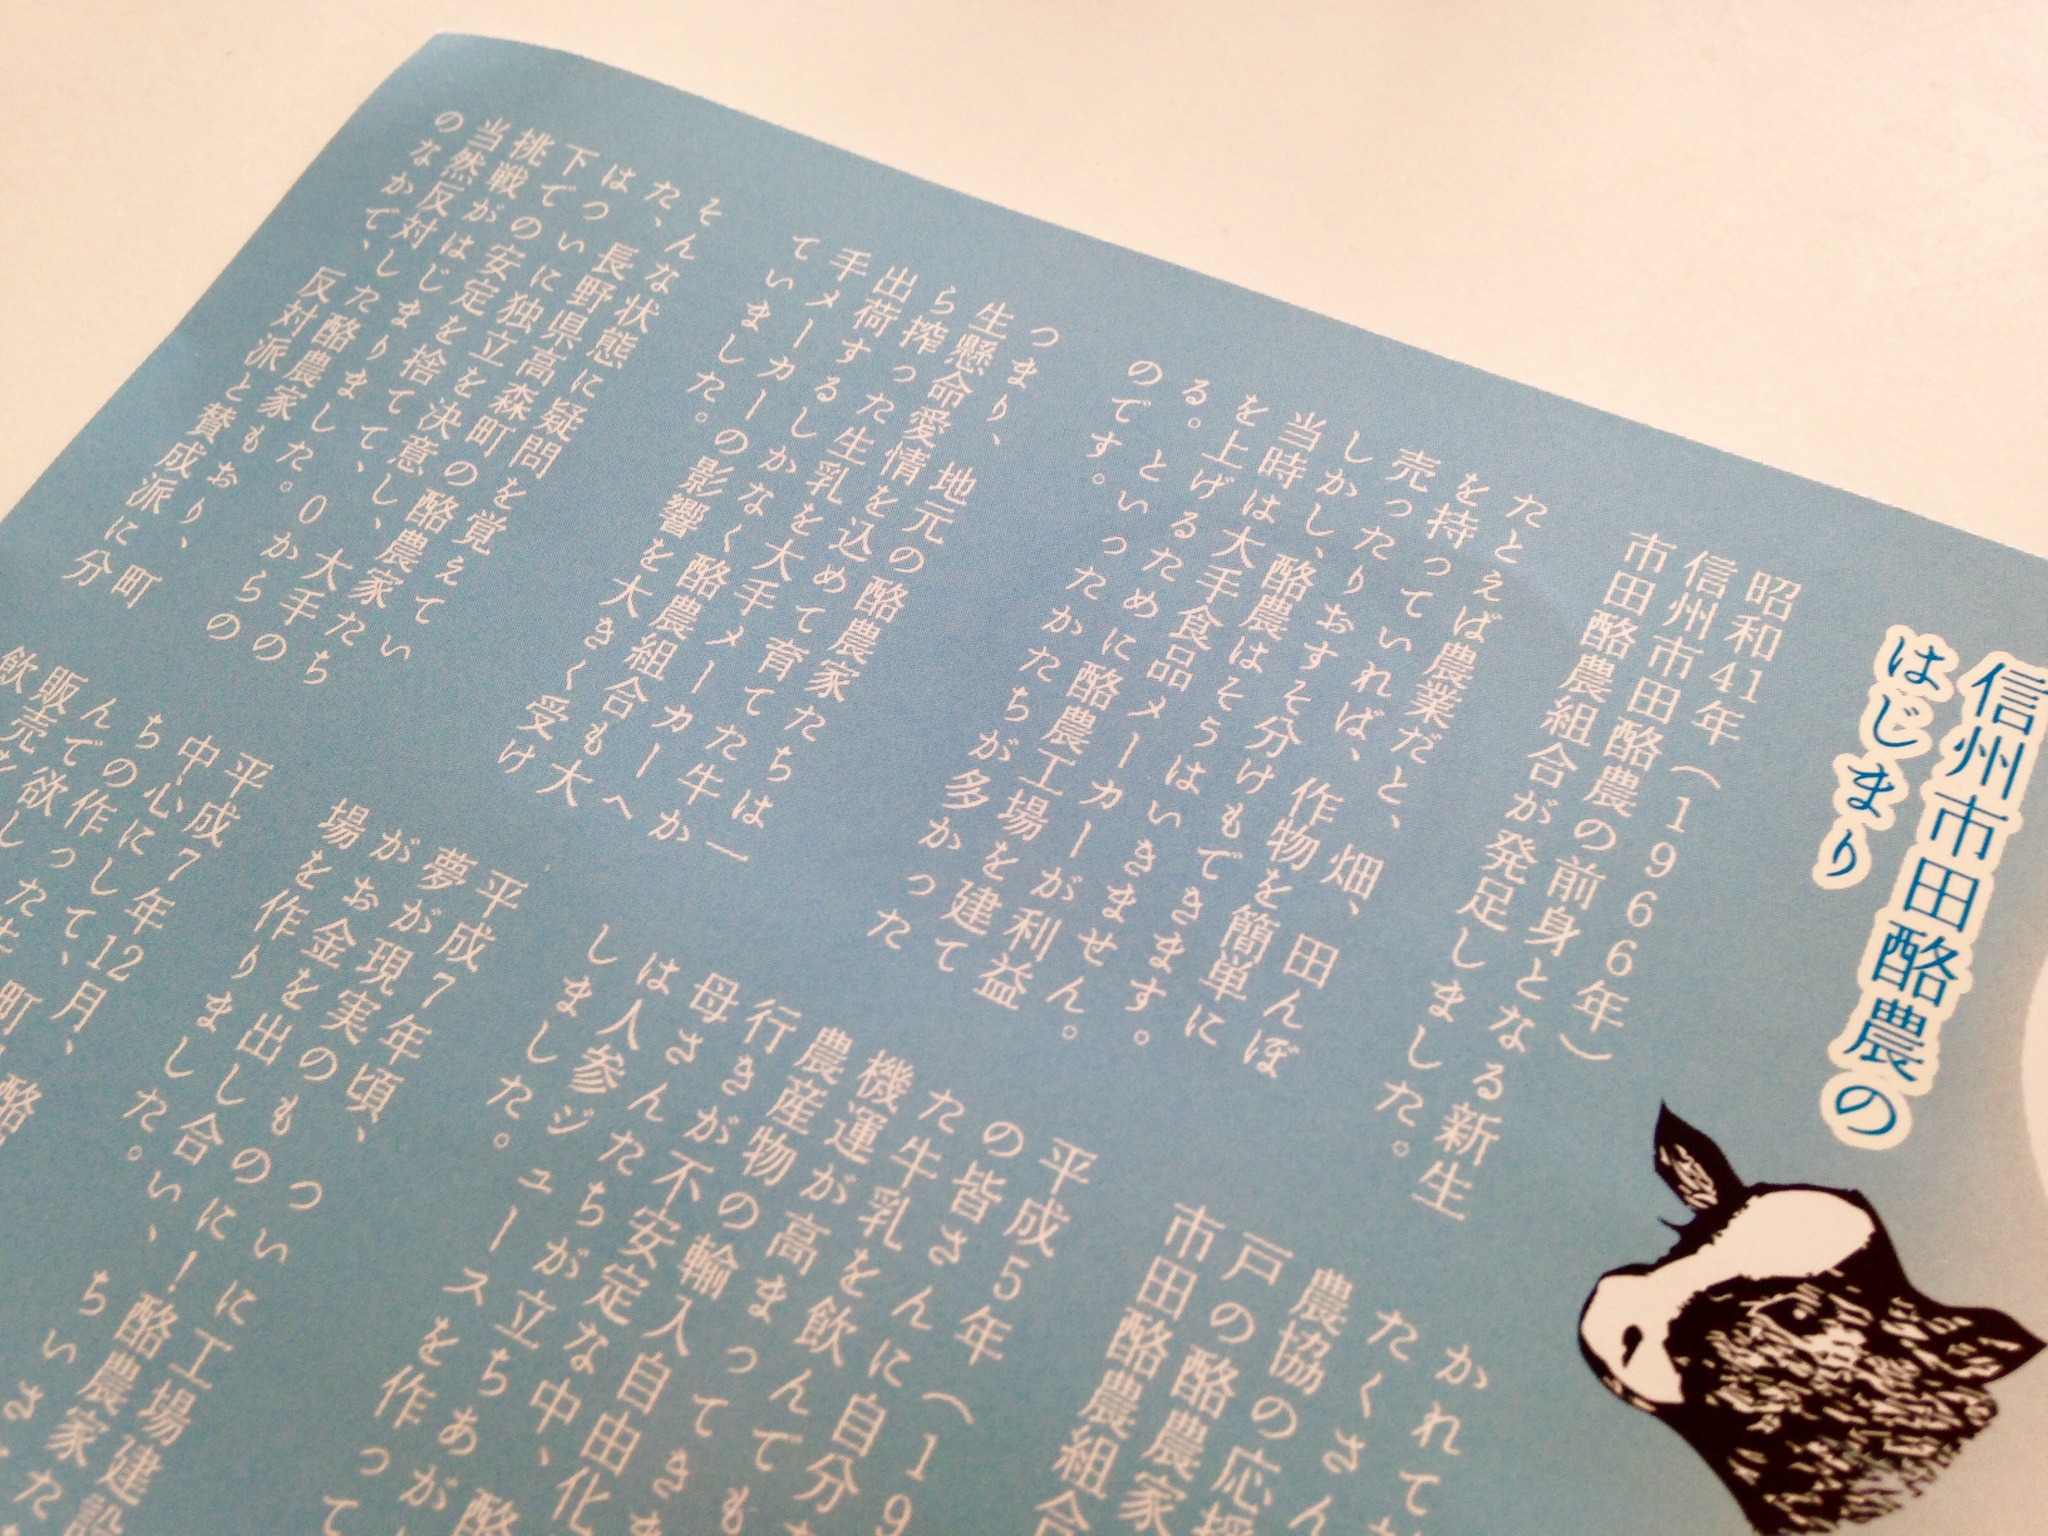 信州市田酪農の
はじまり
昭和41年（1966年）
信州市田酪農の前身となる新生
市田酪農組合が発足しました。
たとえば農業だと、畑、田んぼ
を持っていれば、作物を簡単に
売ったりおすそ分けもできます。
しかし、酪農はそうはいきません。
当時は大手食品メーカーが利益
を上げるために酪農工場を建て
る。といったかたちが多かった
のです。
つまり、地元の酪農家たちは一
生懸命愛情を込めて育てた牛か
ら搾った生乳を大手メーカーへ
出荷するしかなく酪農組合も大
手メーカーの影響を大きく受け
ていました。
そんな状態に疑問を覚えてい
た、長野県高森町の酪農家たち
はついに独立を決意し、大手の
下での安定を捨て、0からの
挑戦がはじまりました。
当然反対した酪農家もおり、町
のなかで、反対派と賛成派に分
かれて
たくさん
農協の応援
戸の酪農家
市田酪農組合
平成5年（19
の皆さんに自分
た牛乳を飲んでも
機運が高まってき
農産物の輸入自由化
行きが不安定な中、酪
母さんたちが立ちあが
は人参ジュースを作って
しました。
平成7年頃、ついに工場建設
夢が現実のものに！酪農家た
がお金を出し合い、ちいさ
場を作りました。
平成7年12月、酪
中心にして、町
ちの作った
んで欲し
販売
飲